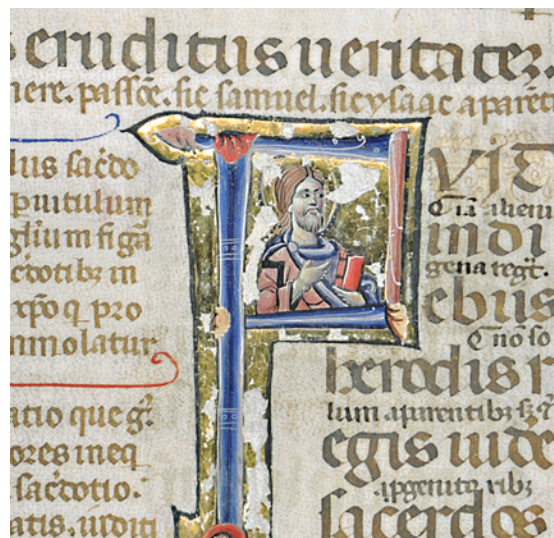 s eruditus ueritatez.
nere. passōe. sic samuel. sic ysaac aparēt
lus sac̄do
p uitulum
gliū m figā
c̄dotibȝ in
xp̄o q pro
mmolatur
atio que g̅:
ores ineq
sac̄dotio.
atis. iuditi
F VIT
alieni
in di
gena regt̄.
ebus
nō so
herodis r
lum aparentibȝ
egis iude
genito ribȝ
sacerdos